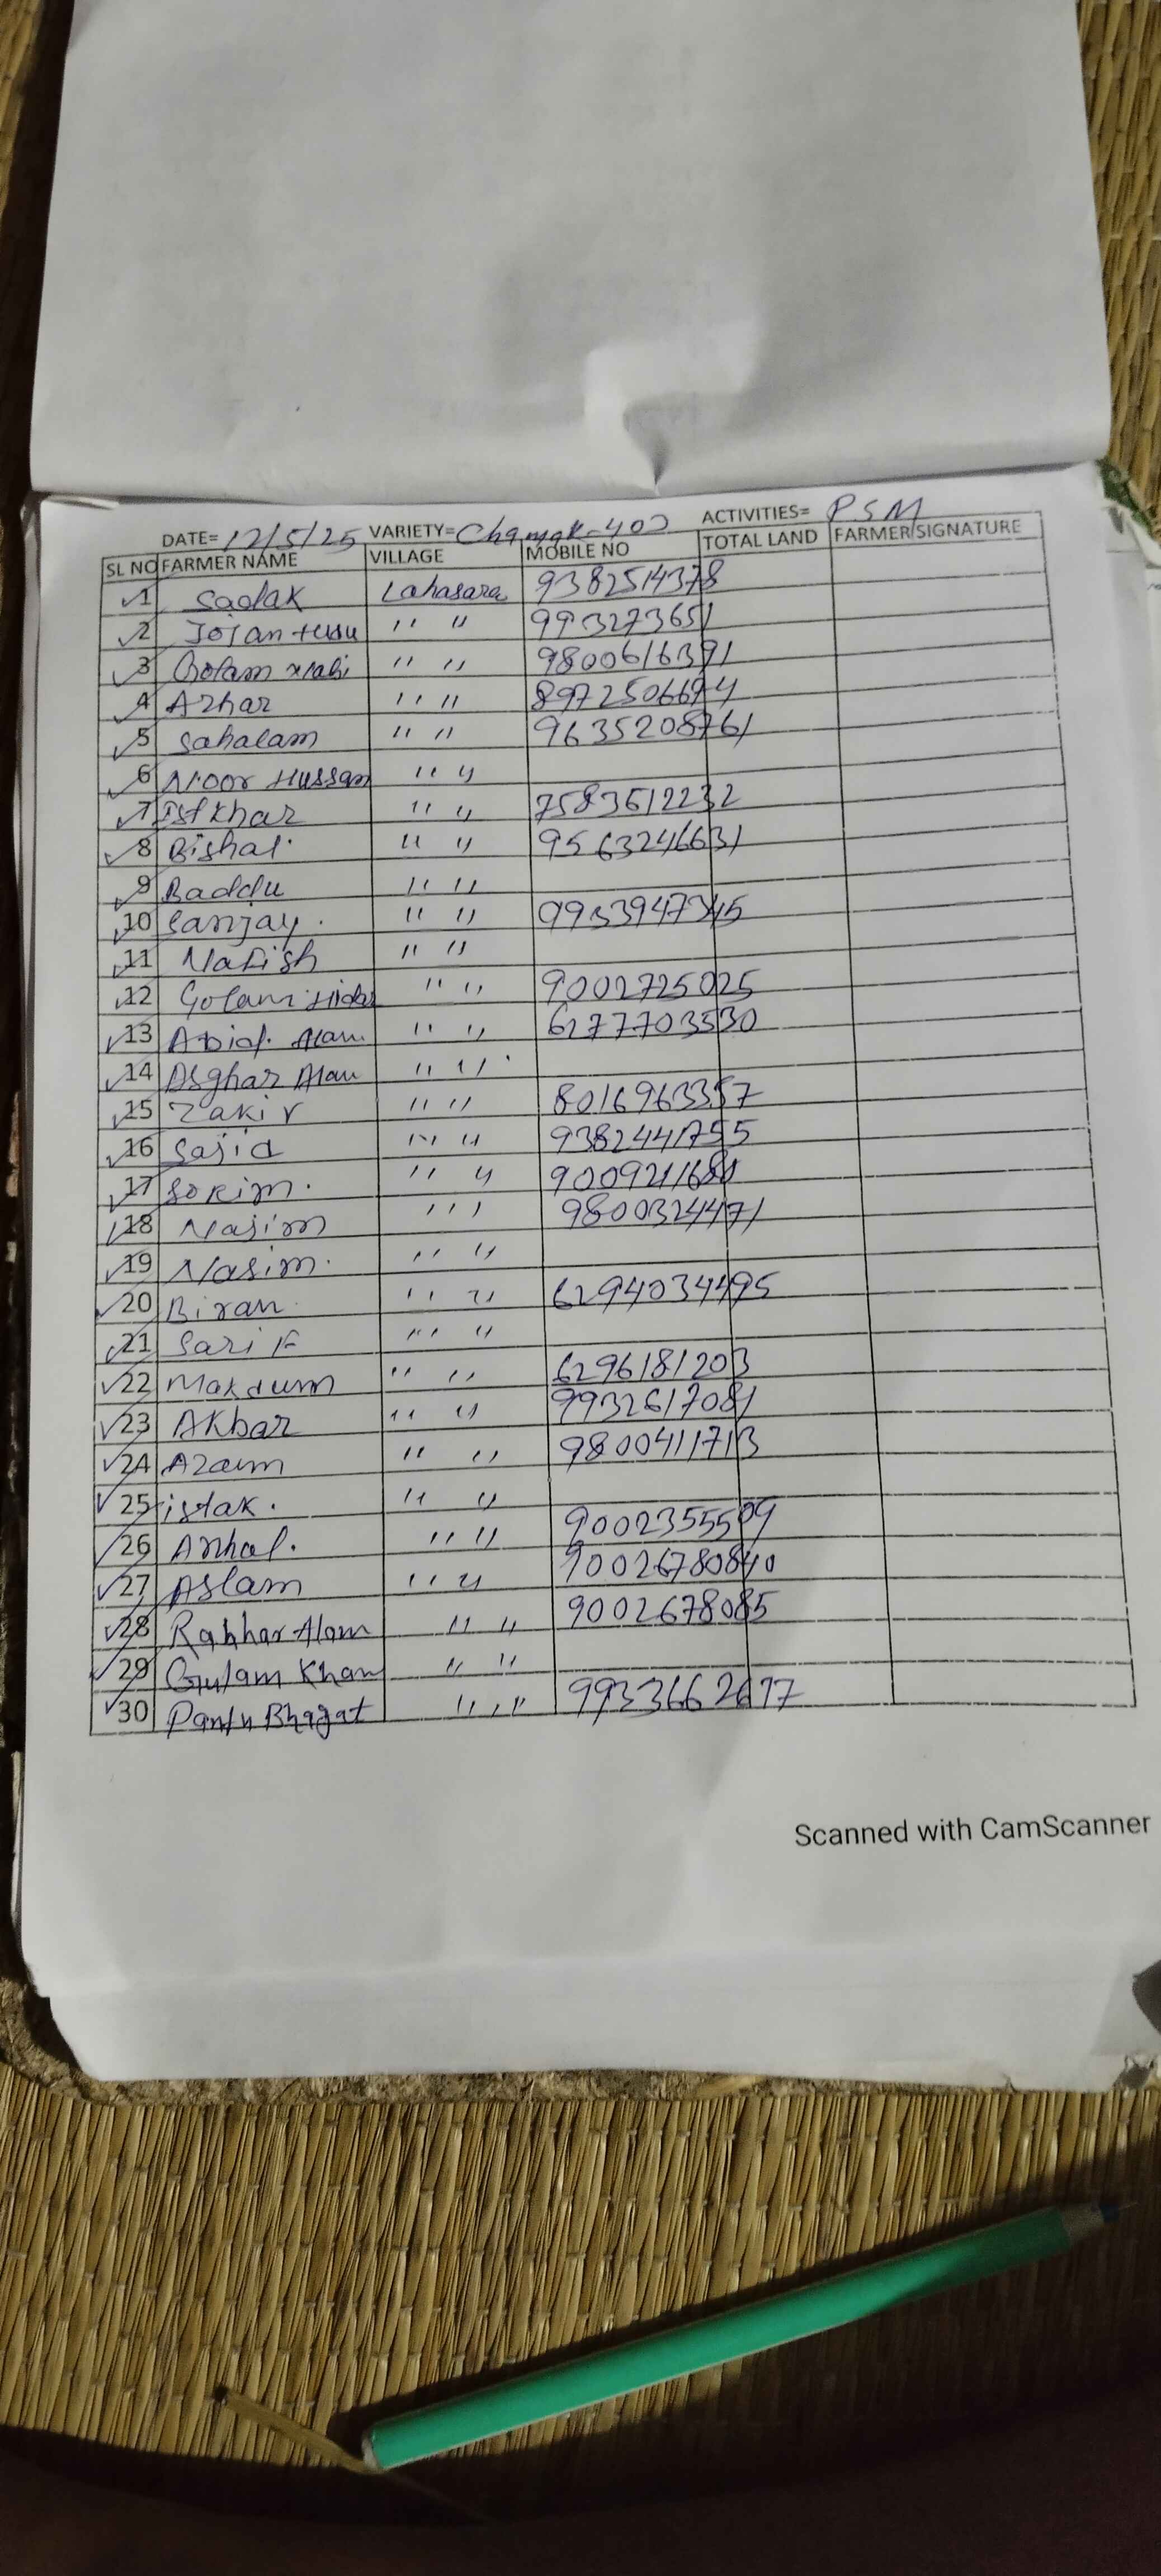 DATE= 12/5/25 VARIETY= Chamak-402 ACTIVITIES= PSM
SL NO FARMER NAME VILLAGE MOBILE NO TOTAL LAND FARMER SIGNATURE
1 Sadak Lahasara 9382514378
2 Jojan " " 993273651
3 Golam " " 9800616391
4 Azhar " " 8972506694
5 Sahalam " " 9635208761
6 Noor Hussan " "
7 Istkhar " " 7583612232
8 Bishal. " " 9563246631
9 Baddu " "
10 Sanjay. " " 9933947345
11 Nafish " "
12 Golam " " 9002725025
13 Alam " " 6277703530
14 Asghar Alam " "
15 Zakir " " 8016963357
16 Sajid " " 9382441755
17 Sokim. " " 9009211680
18 Najim " " 9800324471
19 Nasim. " "
20 Biran " " 6294034495
21 Sarif " "
22 Makdum " " 6296181203
23 Akbar " " 9932617081
24 Azam " " 9800411713
25 istak. " "
26 " " 9002355509
27 Aslam " " 90026780840
28 Rahhar Alam " " 9002678085
29 Gulam Khan " "
30 Pantu Bhagat " " 9933662617
Scanned with CamScanner